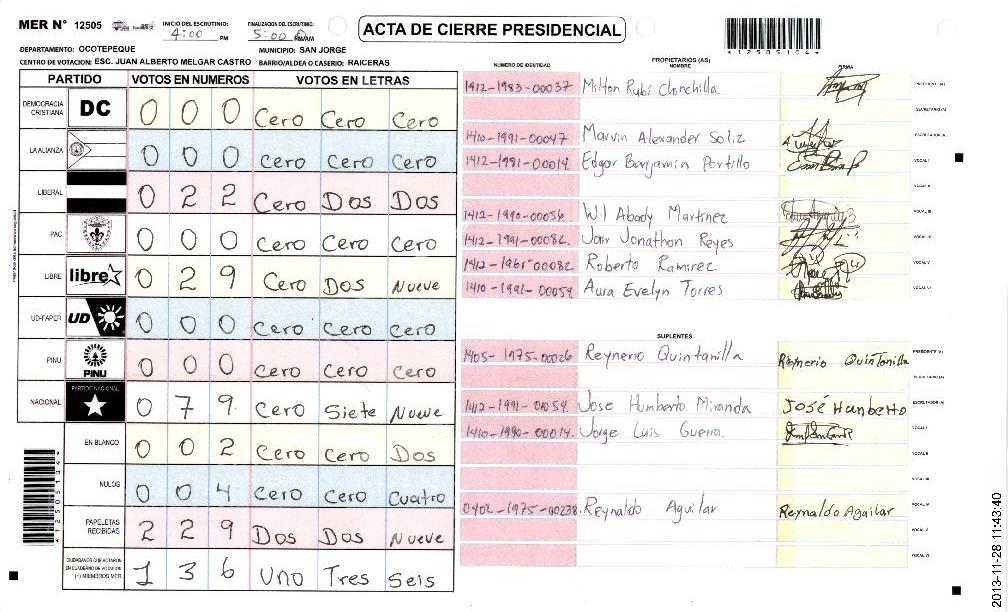 MER N° 12505
INICIO DEL ESCRUTINIO: 4:00 PM
FINALIZACION DEL ESCRUTINIO: 5:00 PM/AM
ACTA DE CIERRE PRESIDENCIAL
*12505104*
DEPARTAMENTO: OCOTEPEQUE MUNICIPIO: SAN JORGE
CENTRO DE VOTACION: ESC. JUAN ALBERTO MELGAR CASTRO BARRIO/ALDEA O CASERIO: RAICERAS
PARTIDO VOTOS EN NUMEROS VOTOS EN LETRAS
DEMOCRACIA CRISTIANA DC 0 0 0 Cero Cero Cero
LA ALIANZA 0 0 0 Cero Cero Cero
LIBERAL 0 2 2 Cero Dos Dos
PAC 0 0 0 Cero Cero Cero
LIBRE libre 0 2 9 Cero Dos Nueve
UD-FAPER UD 0 0 0 Cero Cero Cero
PINU PINU 0 0 0 Cero Cero Cero
NACIONAL PARTIDO NACIONAL 0 7 9 Cero Siete Nueve
EN BLANCO 0 0 2 Cero Cero Dos
NULOS 0 0 4 Cero Cero Cuatro
PAPELETAS RECIBIDAS 2 2 9 Dos Dos Nueve
CIUDADANOS QUE VOTARON EN CUADERNO DE VOTACION (+) MIEMBROS MER 1 3 6 Uno Tres Seis
*12505104*
PROPIETARIOS (AS)
NUMERO DE IDENTIDAD NOMBRE FIRMA
1412-1983-00037 Milton Rubí Chinchilla PRESIDENTE (A)
SECRETARIO (A)
1410-1991-00047 Marvin Alexander Soliz ESCRUTADOR (A)
1412-1981-00014 Edgar Benjamin Portillo VOCAL I
VOCAL II
1412-1990-00056 Wil Abady Martinez VOCAL III
1412-1991-00082 Jonathon Reyes VOCAL IV
1412-1961-00082 Roberto Ramirez VOCAL V
1410-1991-00054 Aura Evelyn Torres VOCAL VI
SUPLENTES
1405-1975-00026 Reynerio Quintanilla Reynerio Quintanilla PRESIDENTE (A)
SECRETARIO (A)
1412-1991-01054 Jose Humberto Miranda José Humberto ESCRUTADOR (A)
1410-1990-00014 Jorge Luis Guerra VOCAL I
VOCAL II
VOCAL III
0402-1975-00238 Reynaldo Aguilar Reynaldo Aguilar VOCAL IV
VOCAL V
VOCAL VI
2013-11-28 11:43:40